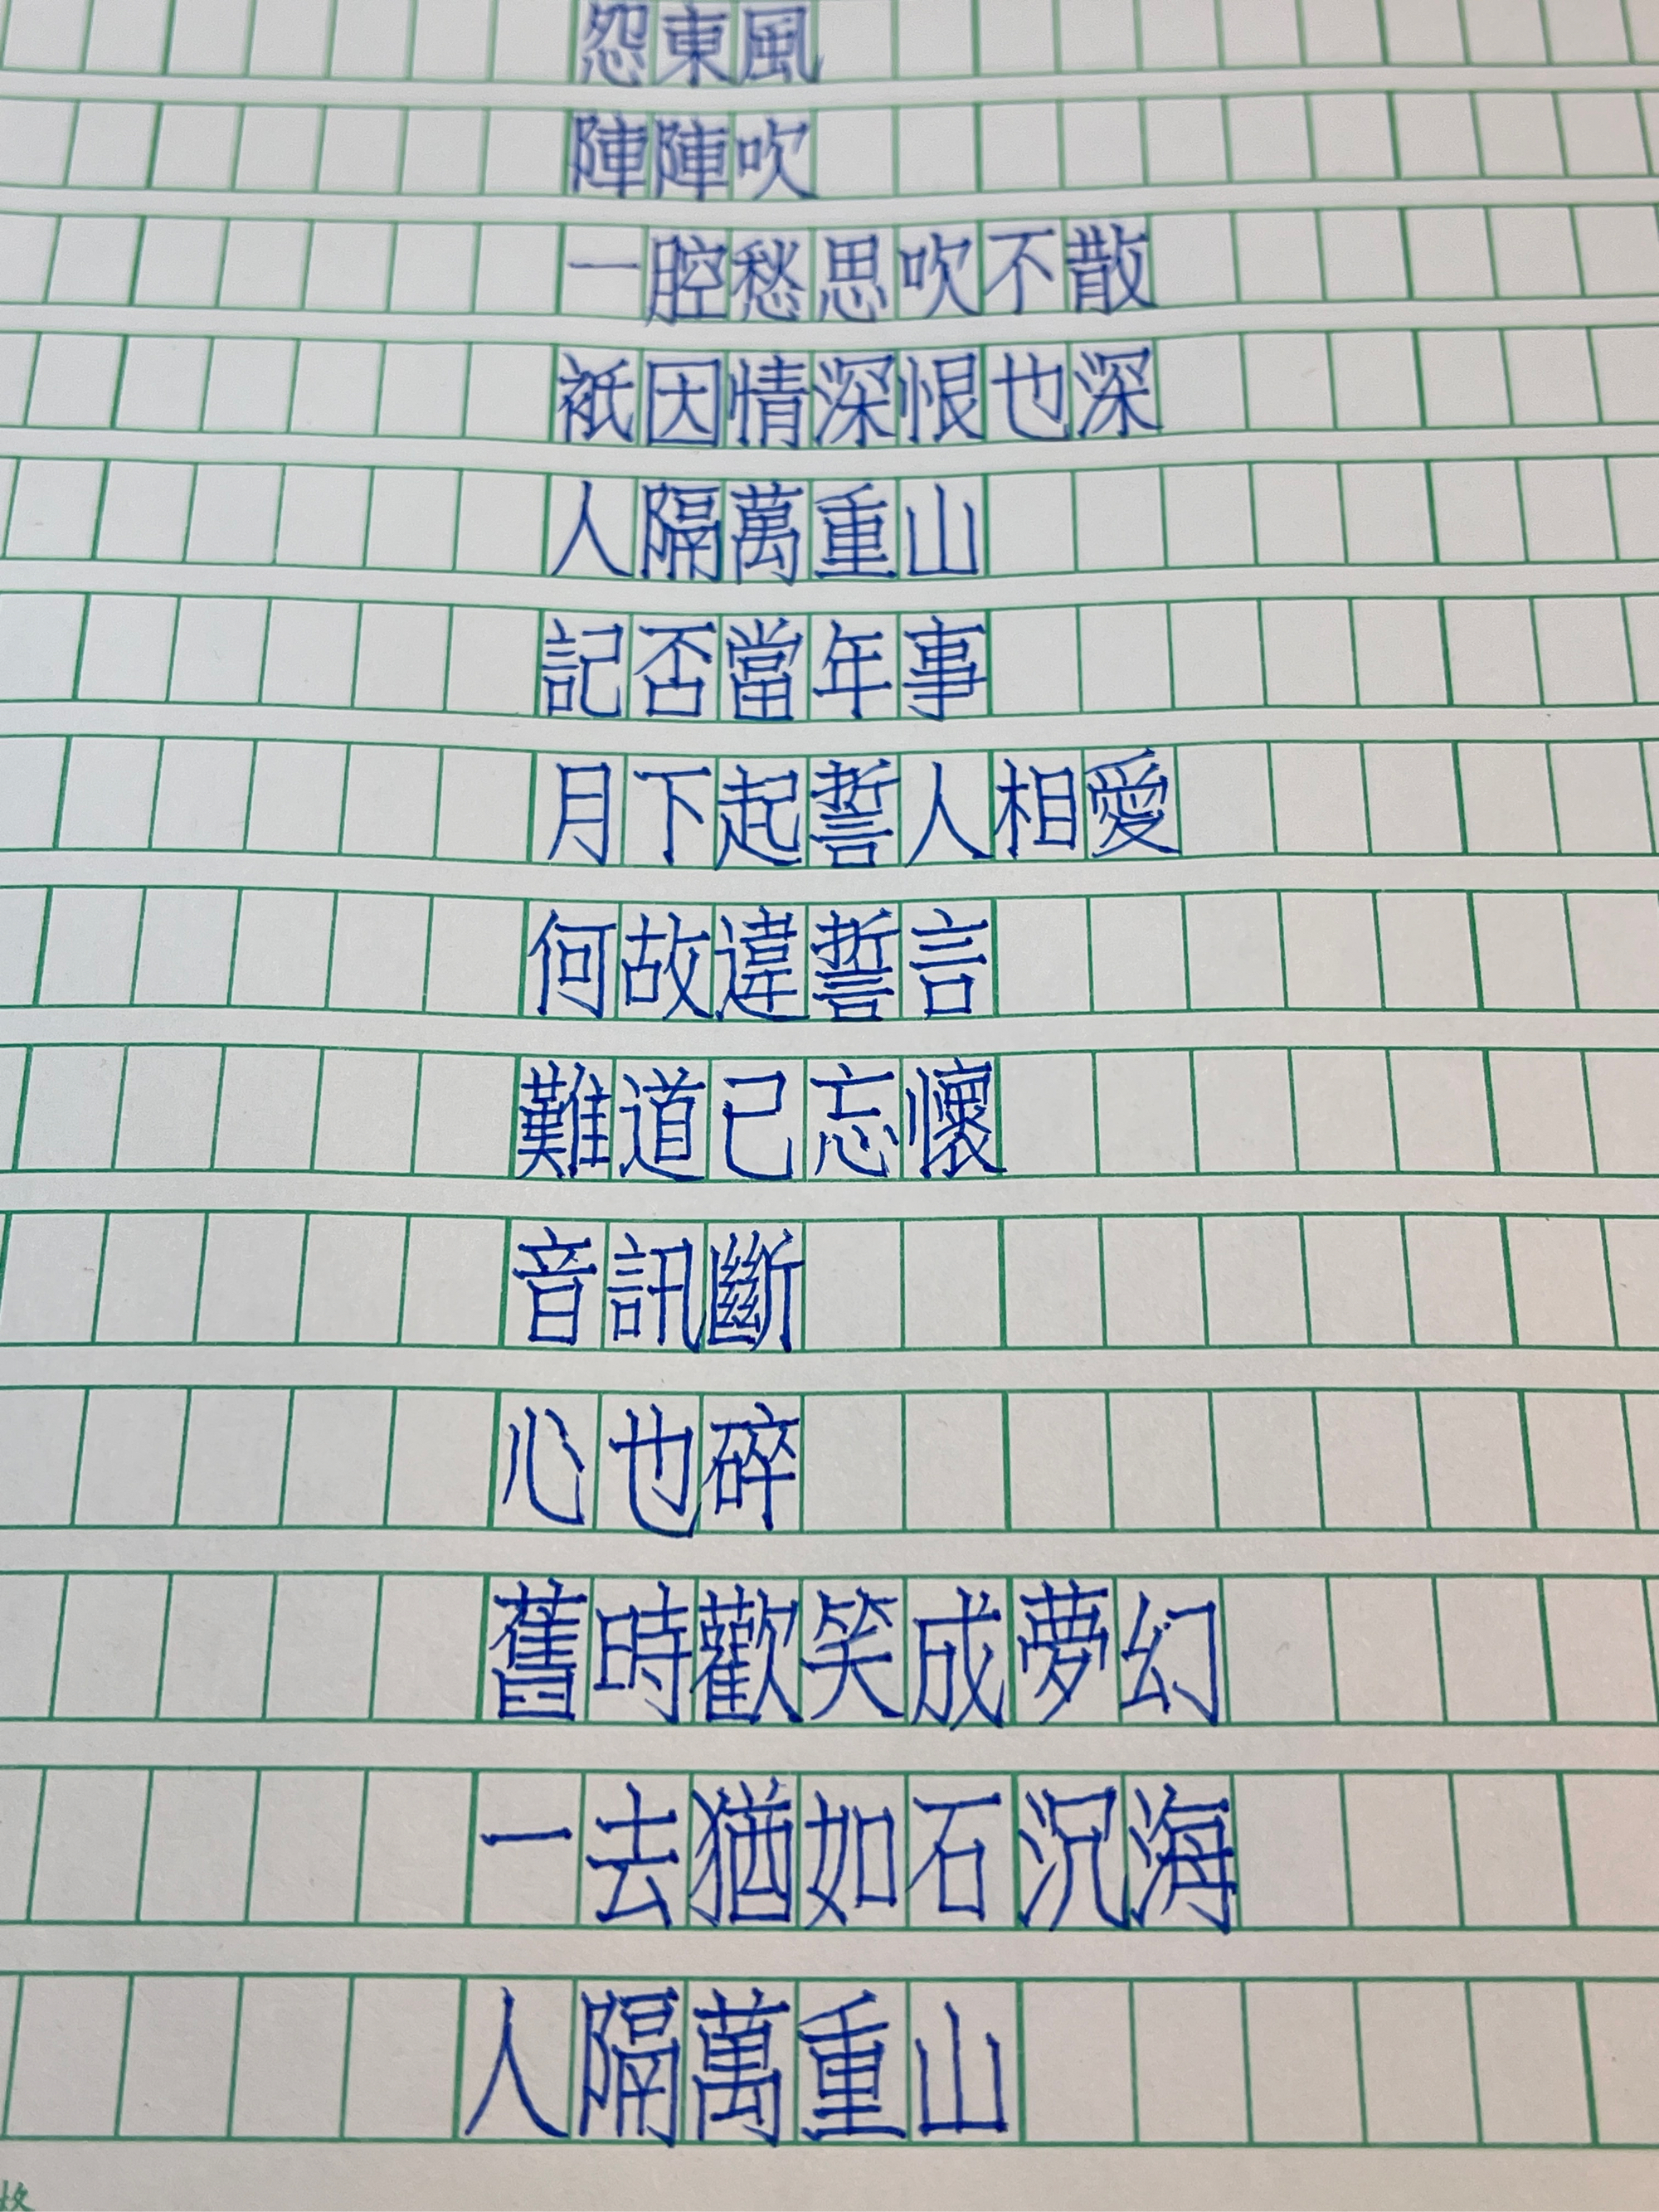 怨東風
陣陣吹
一腔愁思吹不散
衹因情深恨也深
人隔萬重山
記否當年事
月下起誓人相愛
何故違誓言
難道已忘懷
音訊斷
心也碎
舊時歡笑成夢幻
一去猶如石沉海
人隔萬重山